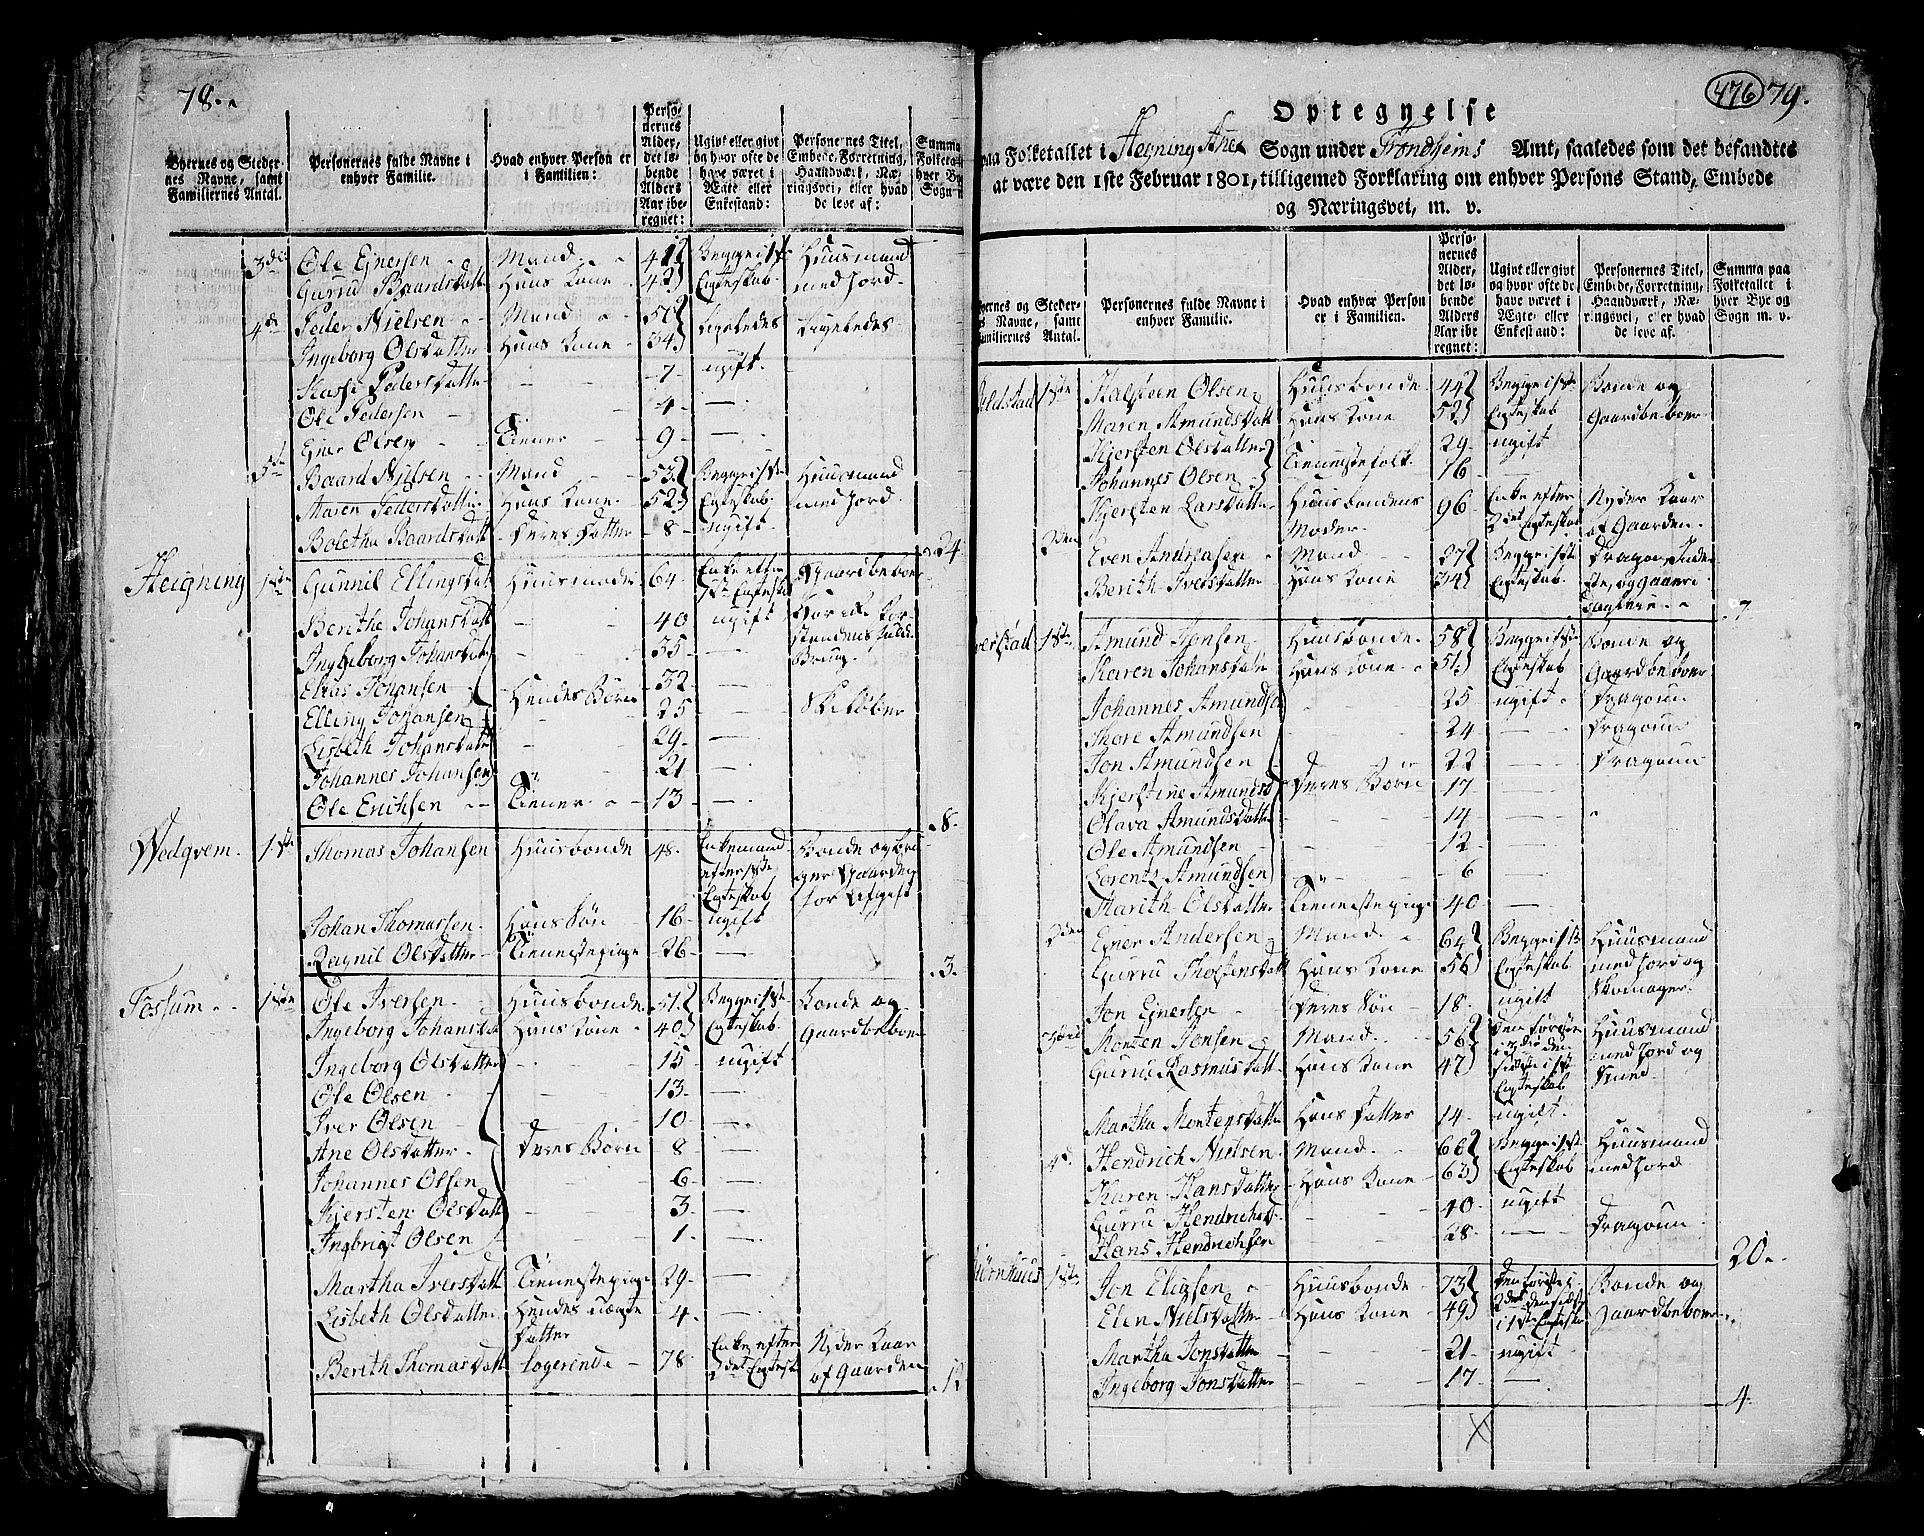 78.
Byernes og Steder-
nes Navne, samt
Familiernes Antal.
Personernes fulde Navne i
enhver Familie.
Hvad enhver Person er
i Familien:
Perso-
nernes
Alder,
det lø-
bende
Alders
Aar ibe-
regnet:
Ugivt eller givt
og hvor ofte de
have været i
Ægte- eller
Enkestand:
Personernes Titel,
Embede, Forretning,
Haandværk, Næ-
ringsvei, eller hvad
de leve af:
Summa
Folketal
hver By
Sogn
3die Ole Ejnersen Mand 41 Begge i 1ste Huusmand
Gurru Baardsdatt Hans Kone 42 Egteskab med Jord.
4de Peder Nielsen Mand 51 Ligeledes Ligeledes
Ingeborg Olsdatter Hans Kone 34
Pedersdatter 7 ugift.
Ole Pedersen 4
Ejner Olsen Tiener 9
5te Baard Nielsen Mand 53 Begge i 1ste Huusmand
Maren Pedersdatter Hans Kone 52 Egteskab med Jord.
Boletha Baardsdatt Deres Datter 8 ugift 24
Heigning 1ste Gunnil Ellingsdatt Huusmoder 64 Enke efter Gaardbeboer
1ste Egtesk.
Berithe Johansdatt 40 ugift
Ingeborg Johansdatt 35
Elias Johansen Hendes Børn 32
Elling Johansen 25 Skieløber
Lisbeth Johansdatt 29
Johannes Johansen 21
Ole Erichsen Tiener 13 8.
Wedqvem. 1ste Thomas Johansen Huusbonde 48 Enkemand Bonde og
efter 1ste
Egteskab
Johan Thomassen Hans Søn 16 ugift
Ragnil Olsdatter Tienestepige 26 3.
Fossum 1ste Ole Iversen Huusbonde 51 Begge i 1ste Bonde og
Ingeborg Johansdatt Hans Kone 40 Egteskab Gaardbeboer
Ingeborg Olsdatter 15 ugift
Ole Olsen 13
Iver Olsen 10
Ane Olsdatter Deres Børn 8
Johannes Olsen 6
Kjersten Olsdatt 3
Ingbrigt Olsen 1
Martha Iversdatt Tienestepige 29
Lisbeth Olsdatter Hendes uægte 4
Datter
Berith Thomasdatt logerende 78 Enke efter Nyder Kaar
2det Egtesk. af Gaarden 12
476 79.
Optegnelse
paa Folketallet i Hegning Anex Sogn under Trondhiems Amt, saaledes som det befandtes
at være den 1ste Februar 1801, tilligemed Forklaring om enhver Persons Stand, Embede
og Næringsvei, m. v.
Byernes og Steder-
nes Navne, samt
Familiernes Antal.
Personernes fulde Navne i
enhver Familie.
Hvad enhver Person
er i Familien.
Perso-
nernes
Alder,
det lø-
bende
Alders
Aar ibe
regnet:
Ugivt eller givt
og hvor ofte de
have været i
Ægte- eller
Enkestand:
Personernes Titel,
Embede, Forretning,
Haandværk, Næ-
ringsvei, eller hvad
de leve af.
Summa paa
Folketallet i
hver Bye og
Sogn m. v.
1ste Halsteen Olsen Huusbonde 44 Begge i 1ste Bonde og
Maren Amundsdatt Hans Kone 52 Egteskab Gaardbeboer
Kjersten Olsdatter 29 ugift
Johannes Olsen Tienestefolk 16
Kjersten Larsdatter Huusbondens 96 Enke efter Nyder Kaar
Moder 2det Egteskab af Gaarden.
2den Even Andreasen Mand 27 Begge i 1ste Dragon,
Berith Iversdatter Hans Kone 34 Egteskab
7
1ste Amund Jonsen Huusbonde 58 Begge i 1ste Bonde og
Karen Johansdatter Hans Kone 51 Egteskab Gaardbeboer
Johannes Amundsen 25 ugift Dragoun
Thore Amundsen 24 Dragoun
Jon Amundsen 22 Dragoun
Kjerstine Amundsd Deres Børn 17
Olava Amundsdatter 14
Ole Amundsen 12
Lorents Amundsen 6
Marith Olsdatter Tienestepige 40
2den Ejner Andersen Mand 64 Begge i 1ste Huusmand
Gurru Thostensdatt Hans Kone 56 Egteskab med Jord og
Jon Ejnersen Deres Søn 18 ugift Skomager
3die Morten Jonsen Mand 56 Den første Huusmand
Gurru Rasmusdatt Hans Kone 47 i 3die den med Jord og
sidste i 1ste Smed
Egteskab
Martha Mortensdatter Hans Datter 14 ugift
4de Hendrich Nielsen Mand 66 Begge i 1ste Huusmand
Karen Hansdatter Hans Kone 63 Egteskab med Jord
Gurru Hendrichsd 40 ugift
Hans Hendrichsen 28 Dragoun
20
1ste Jon Elliasen Huusbonde 73 Den første i Bonde og
Elen Nielsdatter Hans Kone 49 2det den sidste Gaardbeboer
i 1ste Egteskab
Martha Jonsdatter 21 ugift
Ingeborg Jonsdatter 17
4.